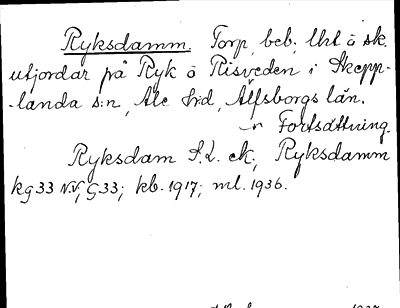 Ryksdamm. Torp, beb; Uht å sk.
utjordar på Ryk å Risveden i Skepp-
-landa s:n, Ale h:d, Älfsborgs län.
Fortsättning.
Ryksdam S.L. ek; Ryksdamm
kg33 N.V, G33; kb. 1917; ml. 1936.